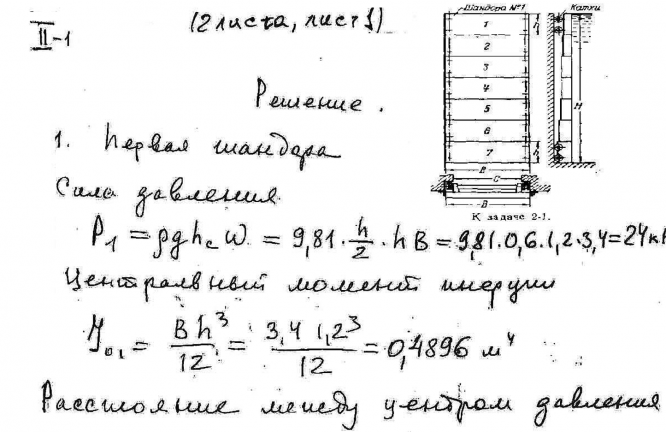 II-1
(2 листа, лист 1)
Шандора №1
Катки
1
2
3
4
5
6
7
h
h
H
B
C
D
К задаче 2-1.
Решение.
1. Первая шандора
Сила давления
P₁ = ρghcω = 9,81·h/2·hB = 9,81·0,6·1,2·3,4 = 24 к
Централвный момент инерции
J₀₁ = Bh³/12 = 3,4 1,2³/12 = 0,4896 м⁴
Расстояние между центром давления